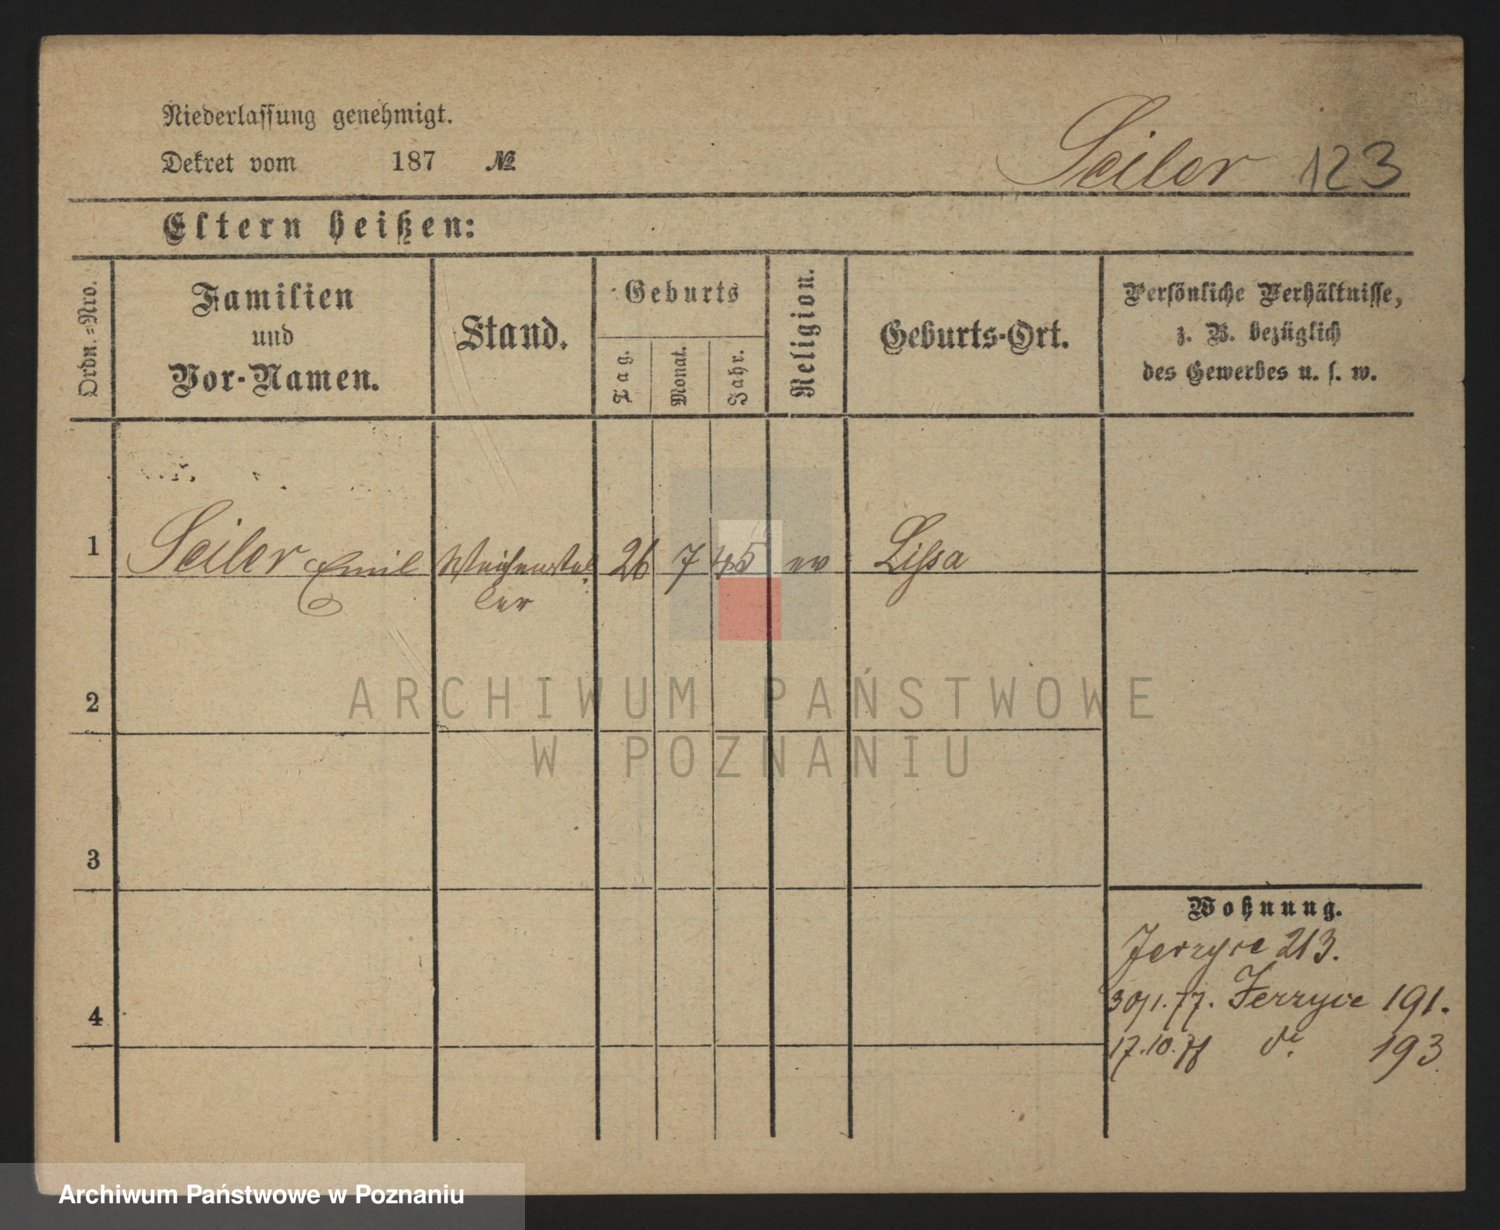 Niederlassung genehmigt.
Dekret vom 187 №
Seiler 123
Eltern heißen:
Ordn.-Nro.
Familien
und
Vor-Namen.
Stand.
Geburts
Tag.
Monat.
Jahr.
Religion.
Geburts-Ort.
Persönliche Verhältnisse,
z. B. bezüglich
des Gewerbes u. s. w.
1 Seiler Emil Weichenstel
ler 26 7 45 ev Lissa
2
ARCHIWUM PAŃSTWOWE
W POZNANIU
3
Wohnung.
Jerzyce 213.
30/1. 77. Jerzyce 191.
4
17.10. do. 193
Archiwum Państwowe w Poznaniu